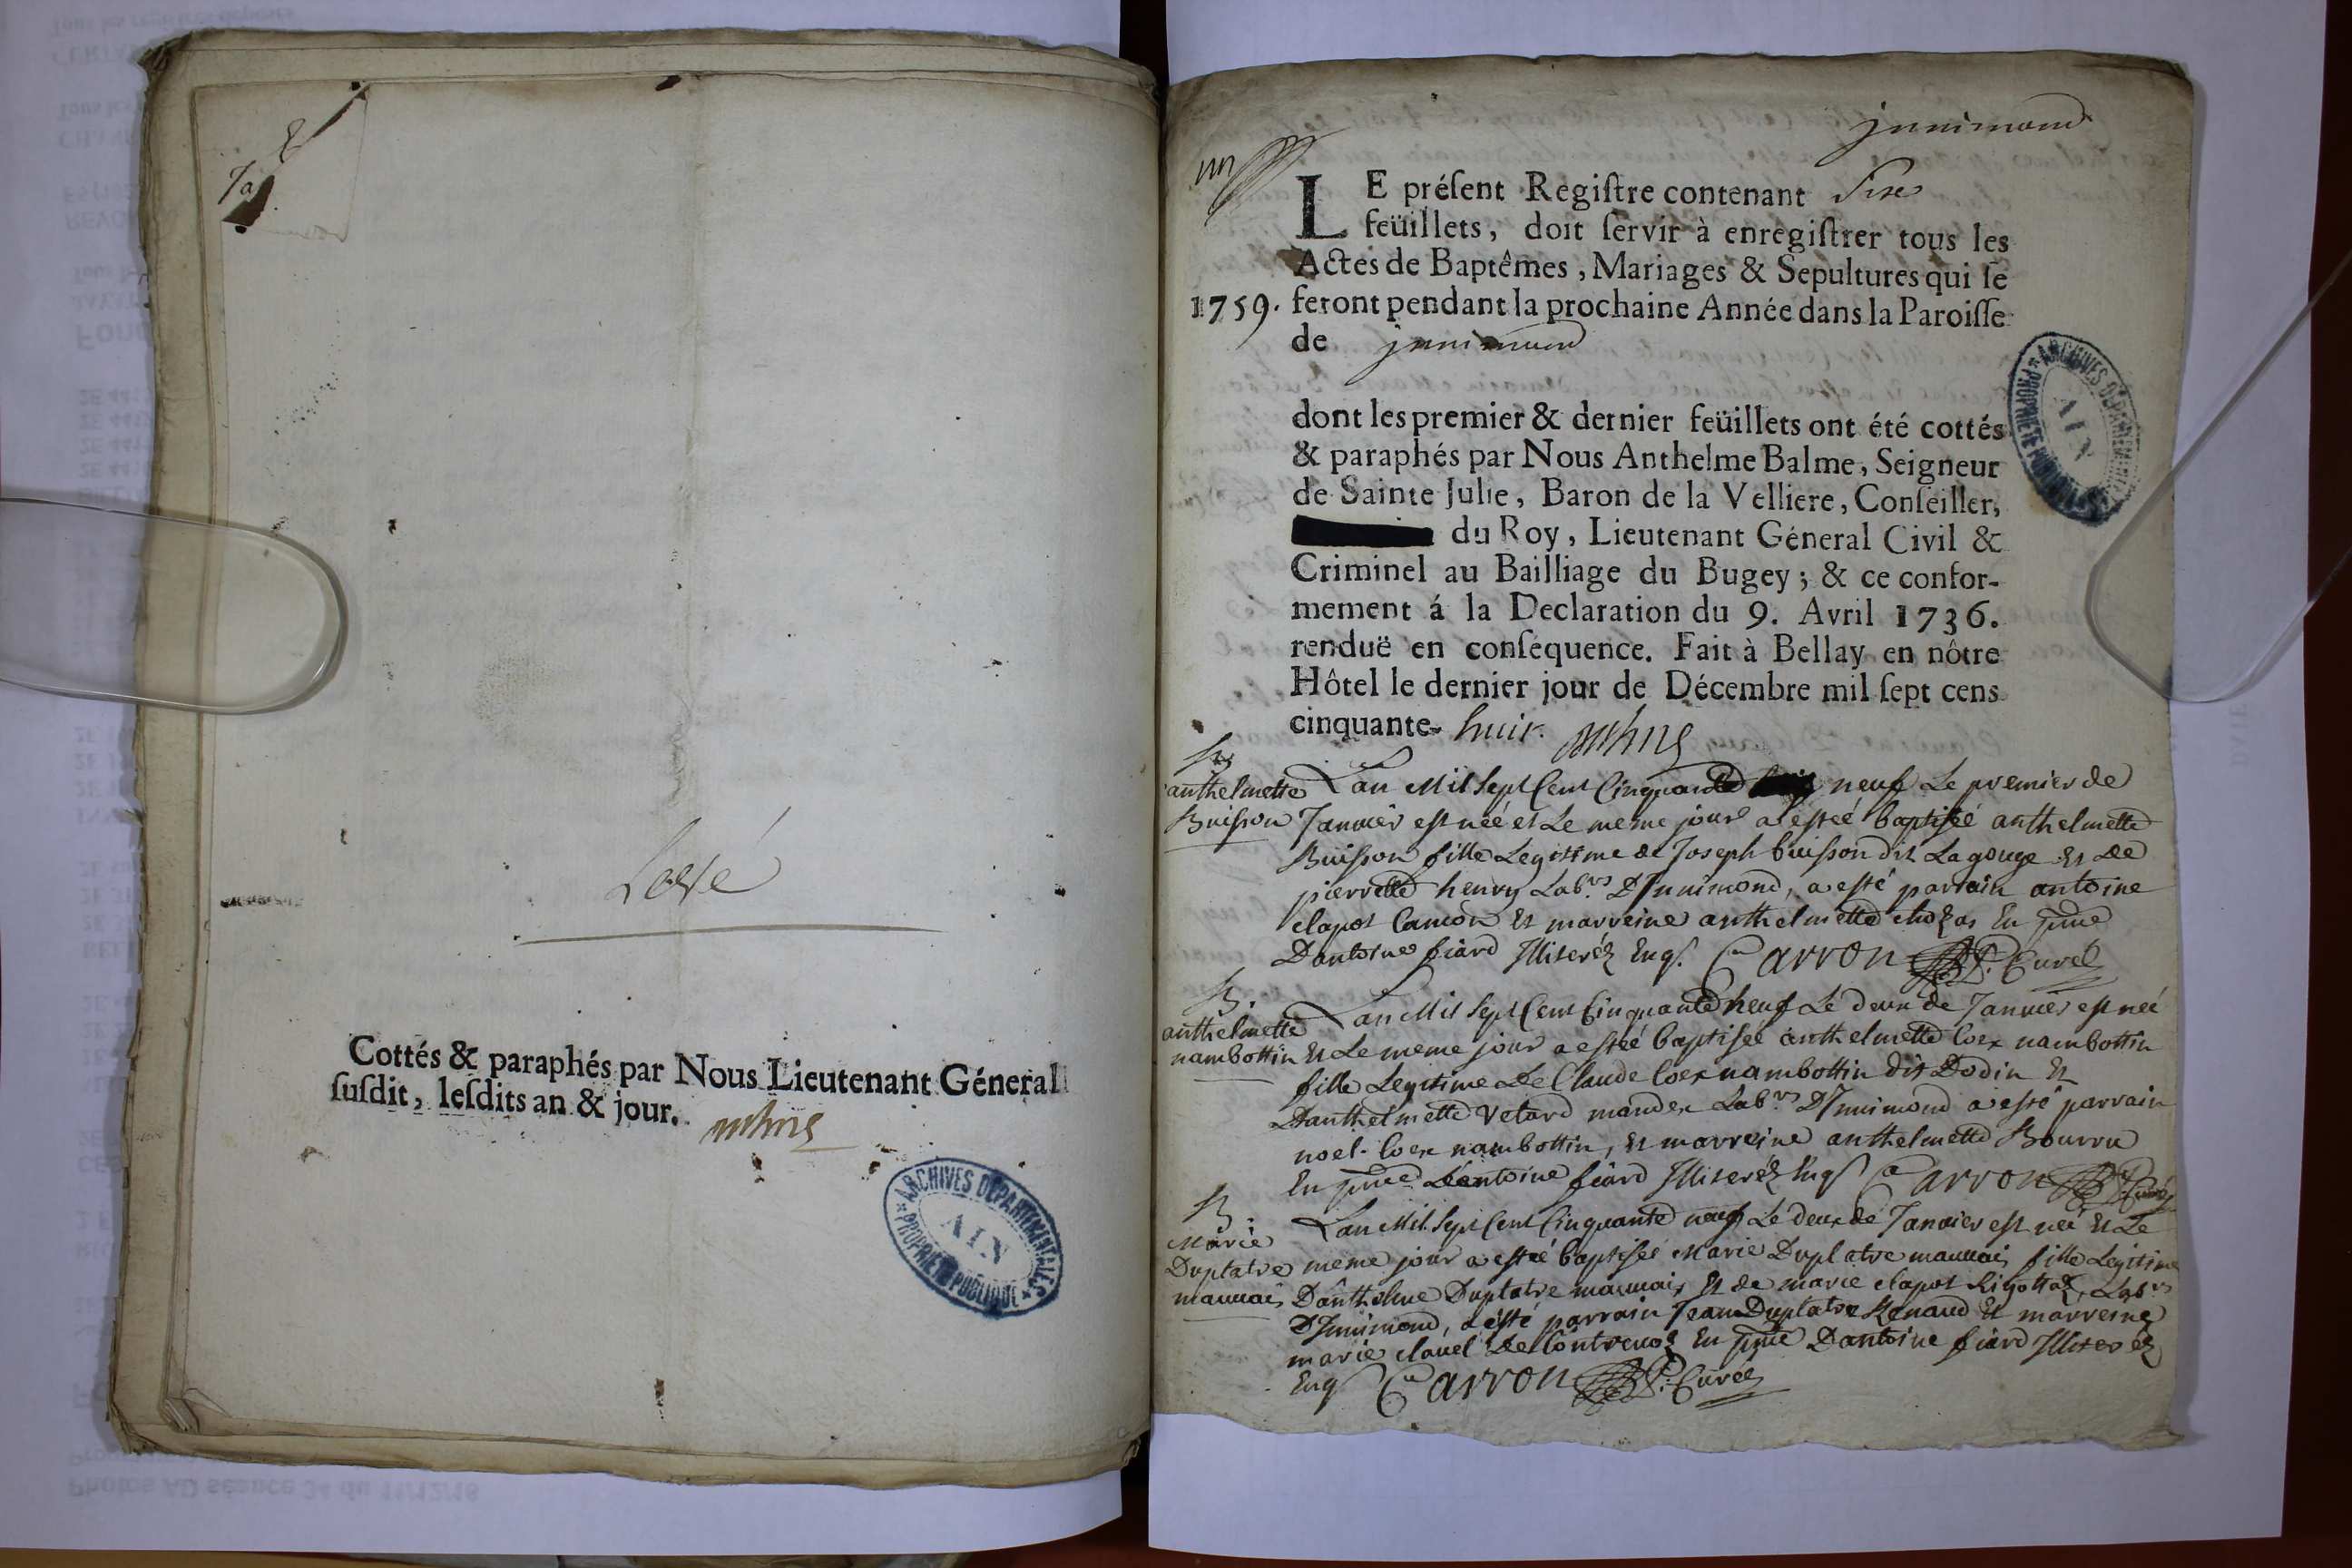 Levé
Cottés & paraphés par Nous Lieutenant Géneral
suſdit, leſdits an & jour.
ARCHIVES DÉPARTEMENTALES
AIN
PROPRIÉTÉ PUBLIQUE
jnnimond
un
LE préſent Regiſtre contenant Six
feüillets, doit ſervir à enregiſtrer tous les
Actes de Baptêmes, Mariages & Sepultures qui ſe
1759. feront pendant la prochaine Année dans la Paroiſſe
de jnnimond
ARCHIVES DÉPARTEMENTALES
AIN
PROPRIÉTÉ PUBLIQUE
dont les premier & dernier feüillets ont été cottés
& paraphés par Nous Anthelme Balme, Seigneur
de Sainte Julie, Baron de la Velliere, Conſeiller,
du Roy, Lieutenant Géneral Civil &
Criminel au Bailliage du Bugey; & ce confor-
mement á la Declaration du 9. Avril 1736.
renduë en conſéquence. Fait à Bellay en nôtre
Hôtel le dernier jour de Décembre mil ſept cens
cinquante- huit.
B.
anthelmette
Buisson
Lan Mil Sept Cent Cinquante neuf Le premier de
Janvier est née et Le meme jour a esteé baptiseé anthelmette
Buisson fille Legitime de Joseph buisson dit La gouge et De
pierrette henry Labrs D'Innimond, a esté parrain antoine
clapot Camon et marreine anthelmette En pnce
Dantoine fiard Illiteréz Enqs. Carron P. Curé
B.
anthelmette
nambottin
Lan Mil Sept Cent Cinquante neuf Le deux de Janvier est née
et Le meme jour a esteé baptiseé anthelmette Coex nambottin
fille Legitime de Claude Coex nambottin dit Dodin et
Danthelmette Vetard mandex Labrs D'Innimond a esté parrain
noel Coex nambottin, et marreine anthelmette Bourru
En pnce D'antoine fiard Illiteréz Enqs Carron P. Curé
B.
Marie
Duplatre
mauuais
Lan Mil Sept Cent Cinquante neuf Le deux de Janvier est neé et Le
meme jour a esteé baptiseé Marie Duplatre mauuais fille Legitime
D'anthelme Duplatre mauuais et de marie clapot Rigottaz, Labrs
D'Innimond, a esté parrain Jean Duplatre Renaud et marreine
marie clauel De Contrevoz En pnce Dantoine fiard Illiteréz
Enqs Carron P. Curé